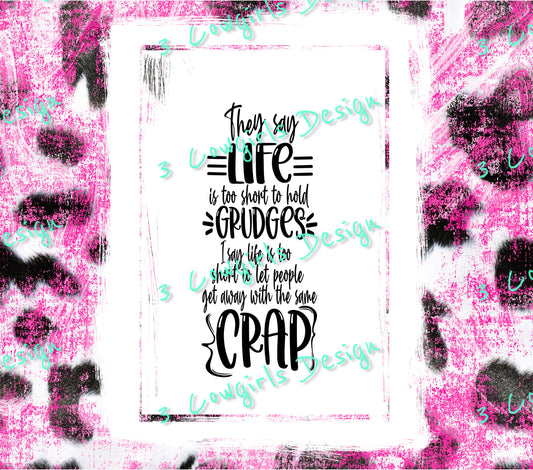 They say
LIFE
is too short to hold
GRUDGES
I say life is too
short to let people
get away with the same
CRAP
3 Cowgirls Design
3 Cowgirls Design
3 Cowgirls Design
3 Cowgirls Design
3 Cowgirls Design
3 Cowgirls Design